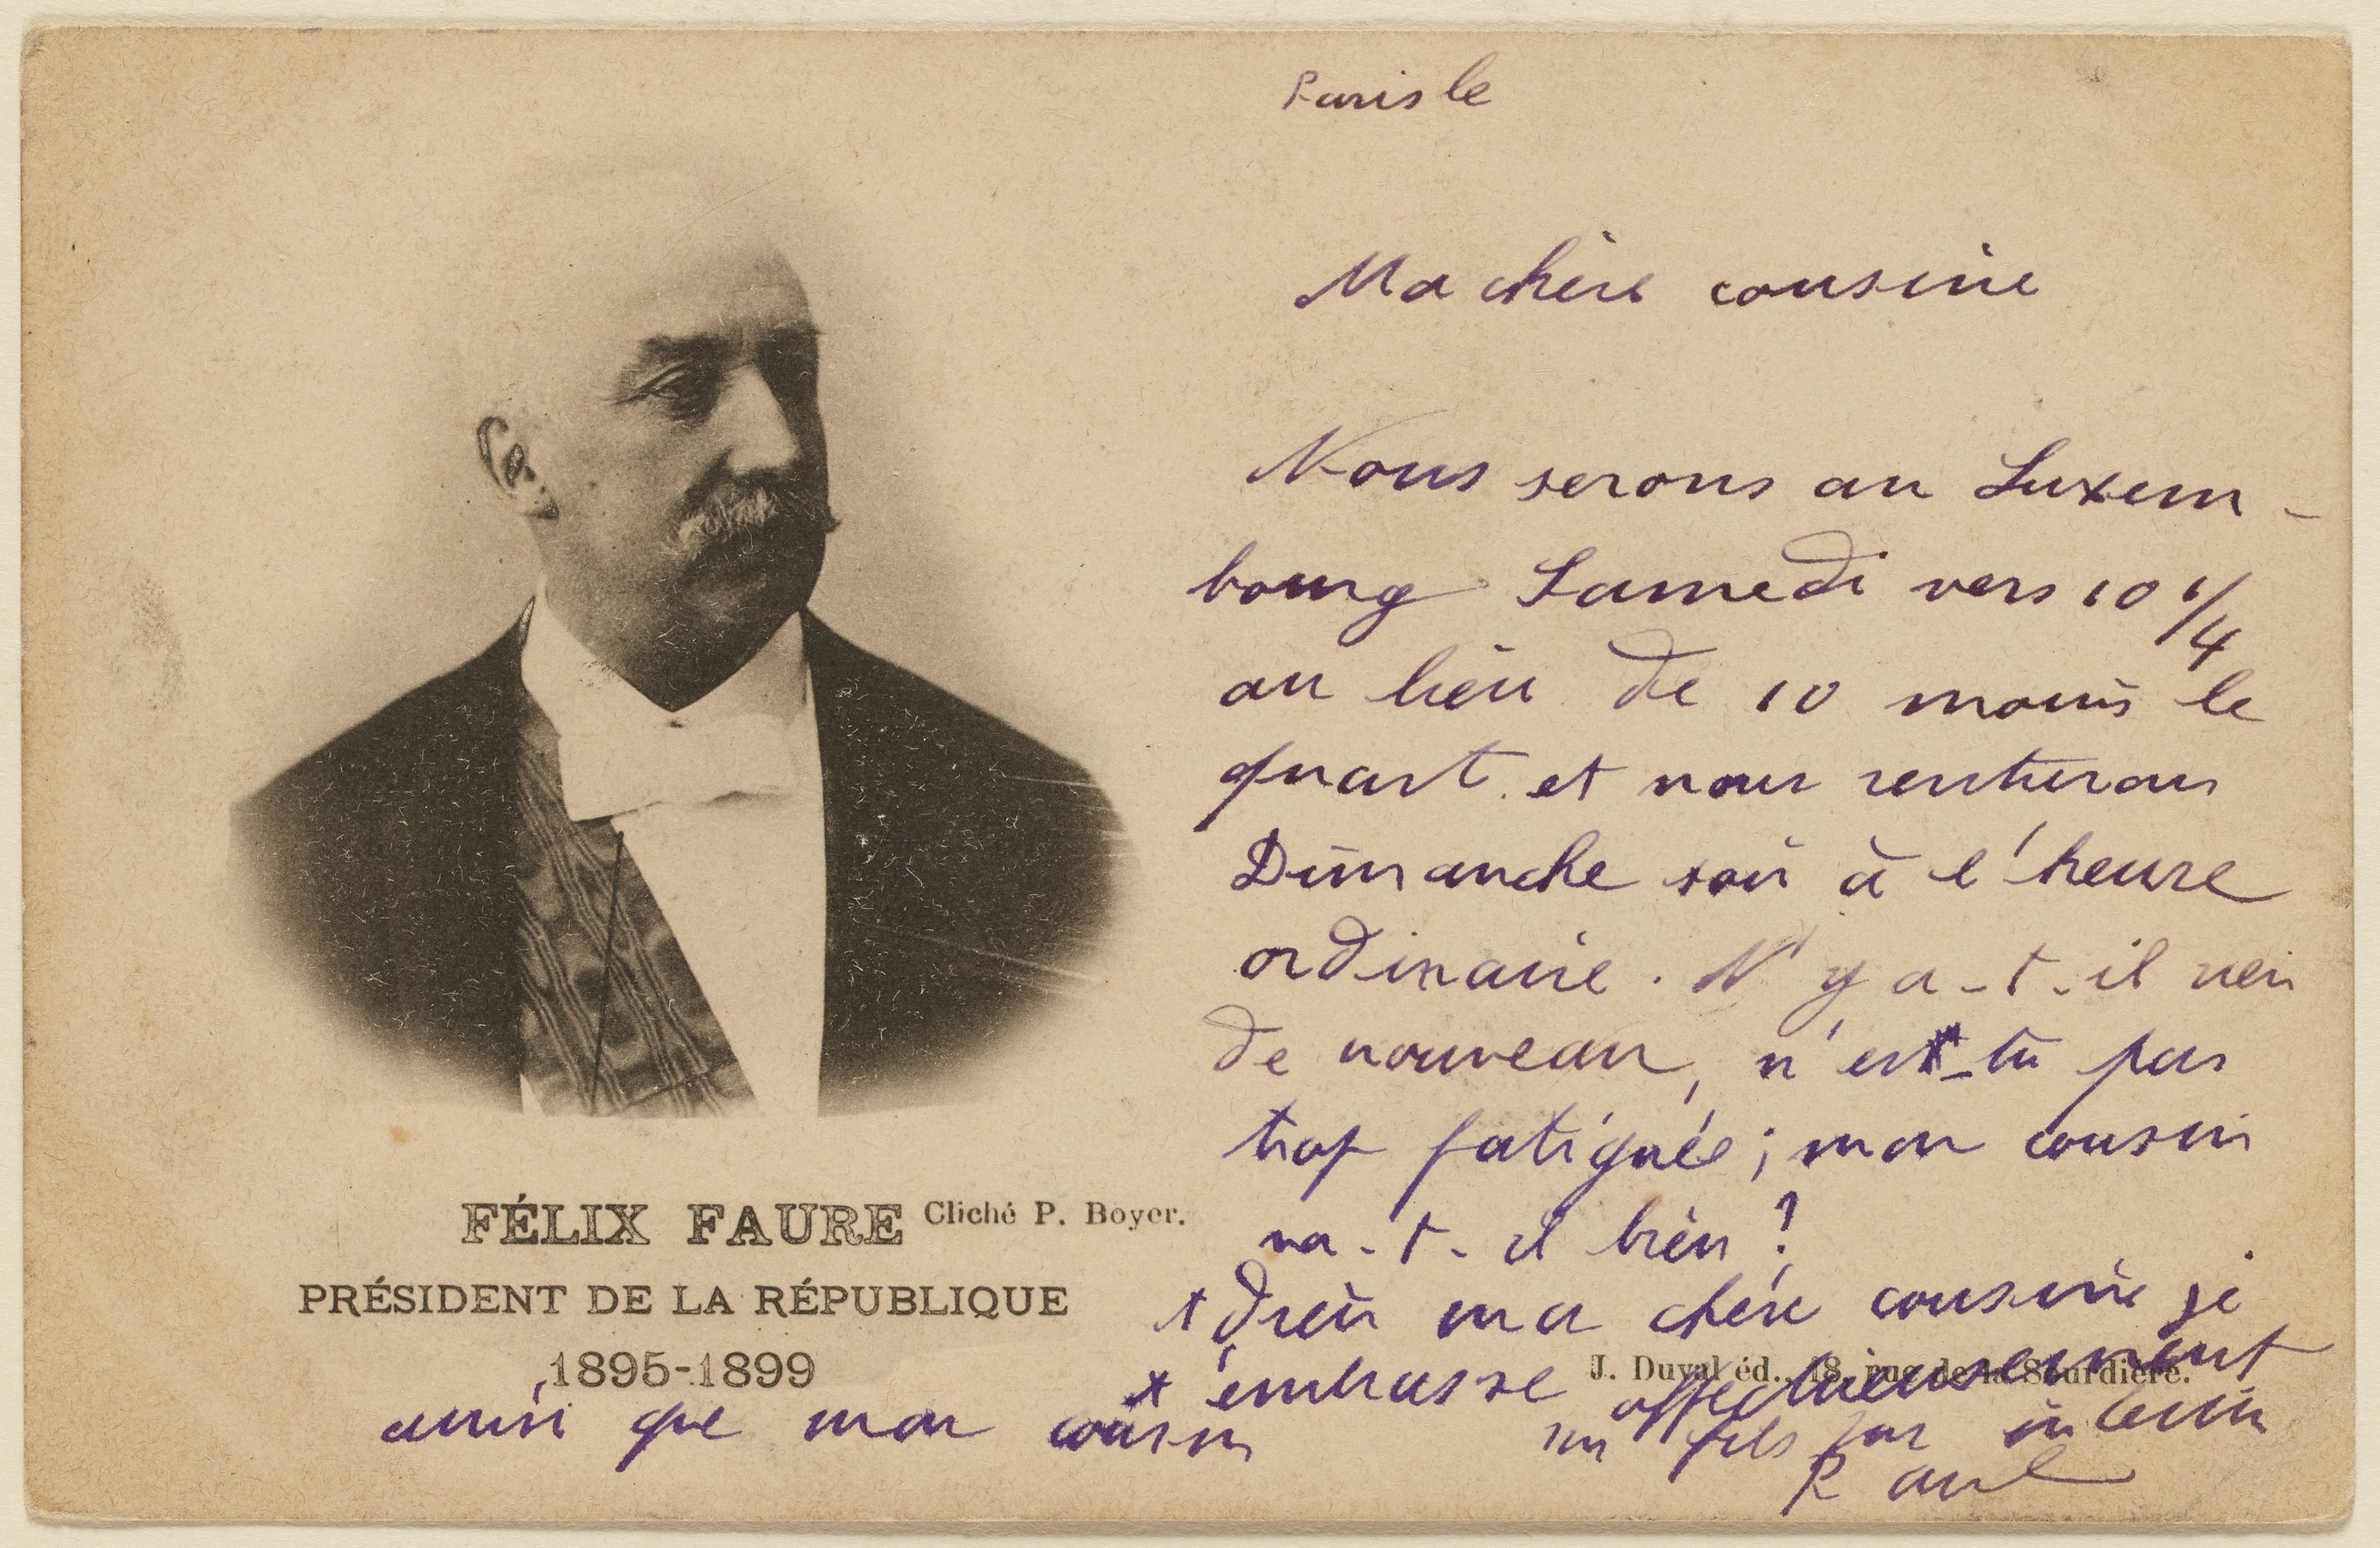 Paris le
Ma chère cousine
Nous serons au Luxem-
bourg Samedi vers 10 1/4
au lieu de 10 moins le
quart. et nous rentrerons
Dimanche soir à l'heure
ordinaire. N'y a-t-il rien
de nouveau, n'est-tu pas
trop fatiguée; mon cousin
va-t-il bien?
Adieu ma chère cousine je
t'embrasse affectueusement
ainsi que mon cousin
un fils par intérim
Raoul
FÉLIX FAURE Cliché P. Boyer.
PRÉSIDENT DE LA RÉPUBLIQUE
1895-1899
J. Duval éd., 18, rue de la Sourdière.